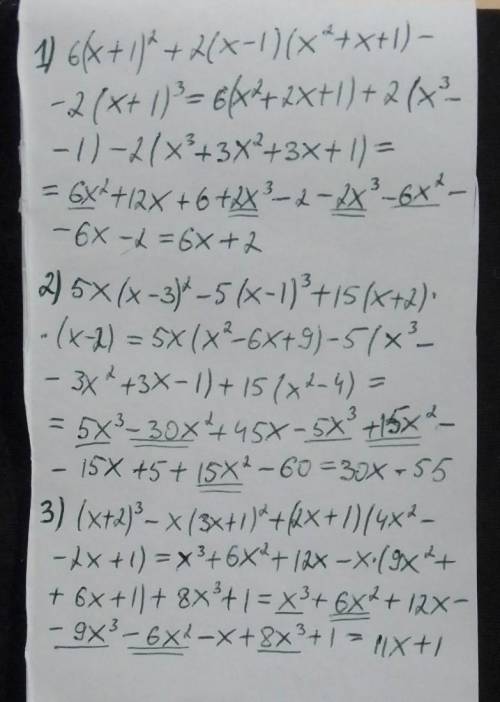 1) 6(x+1)² + 2(x-1)(x²+x+1) -
- 2(x+1)³ = 6(x²+2x+1) + 2(x³-
-1) - 2(x³+3x²+3x+1) =
= 6x²+12x+6+2x³-2-2x³-6x²-
-6x-2=6x+2
2) 5x(x-3)²-5(x-1)³+15(x+2)·
·(x-2) = 5x(x²-6x+9)-5(x³-
- 3x²+3x-1)+15(x²-4) =
= 5x³-30x²+45x-5x³+15x²-
- 15x+5+15x²-60=30x-55
3) (x+2)³-x(3x+1)²+(2x+1)(4x²-
-2x+1)=x³+6x²+12x-x·(9x²+
+ 6x+1)+8x³+1=x³+6x²+12x-
- 9x³-6x²-x+8x³+1= 11x+1